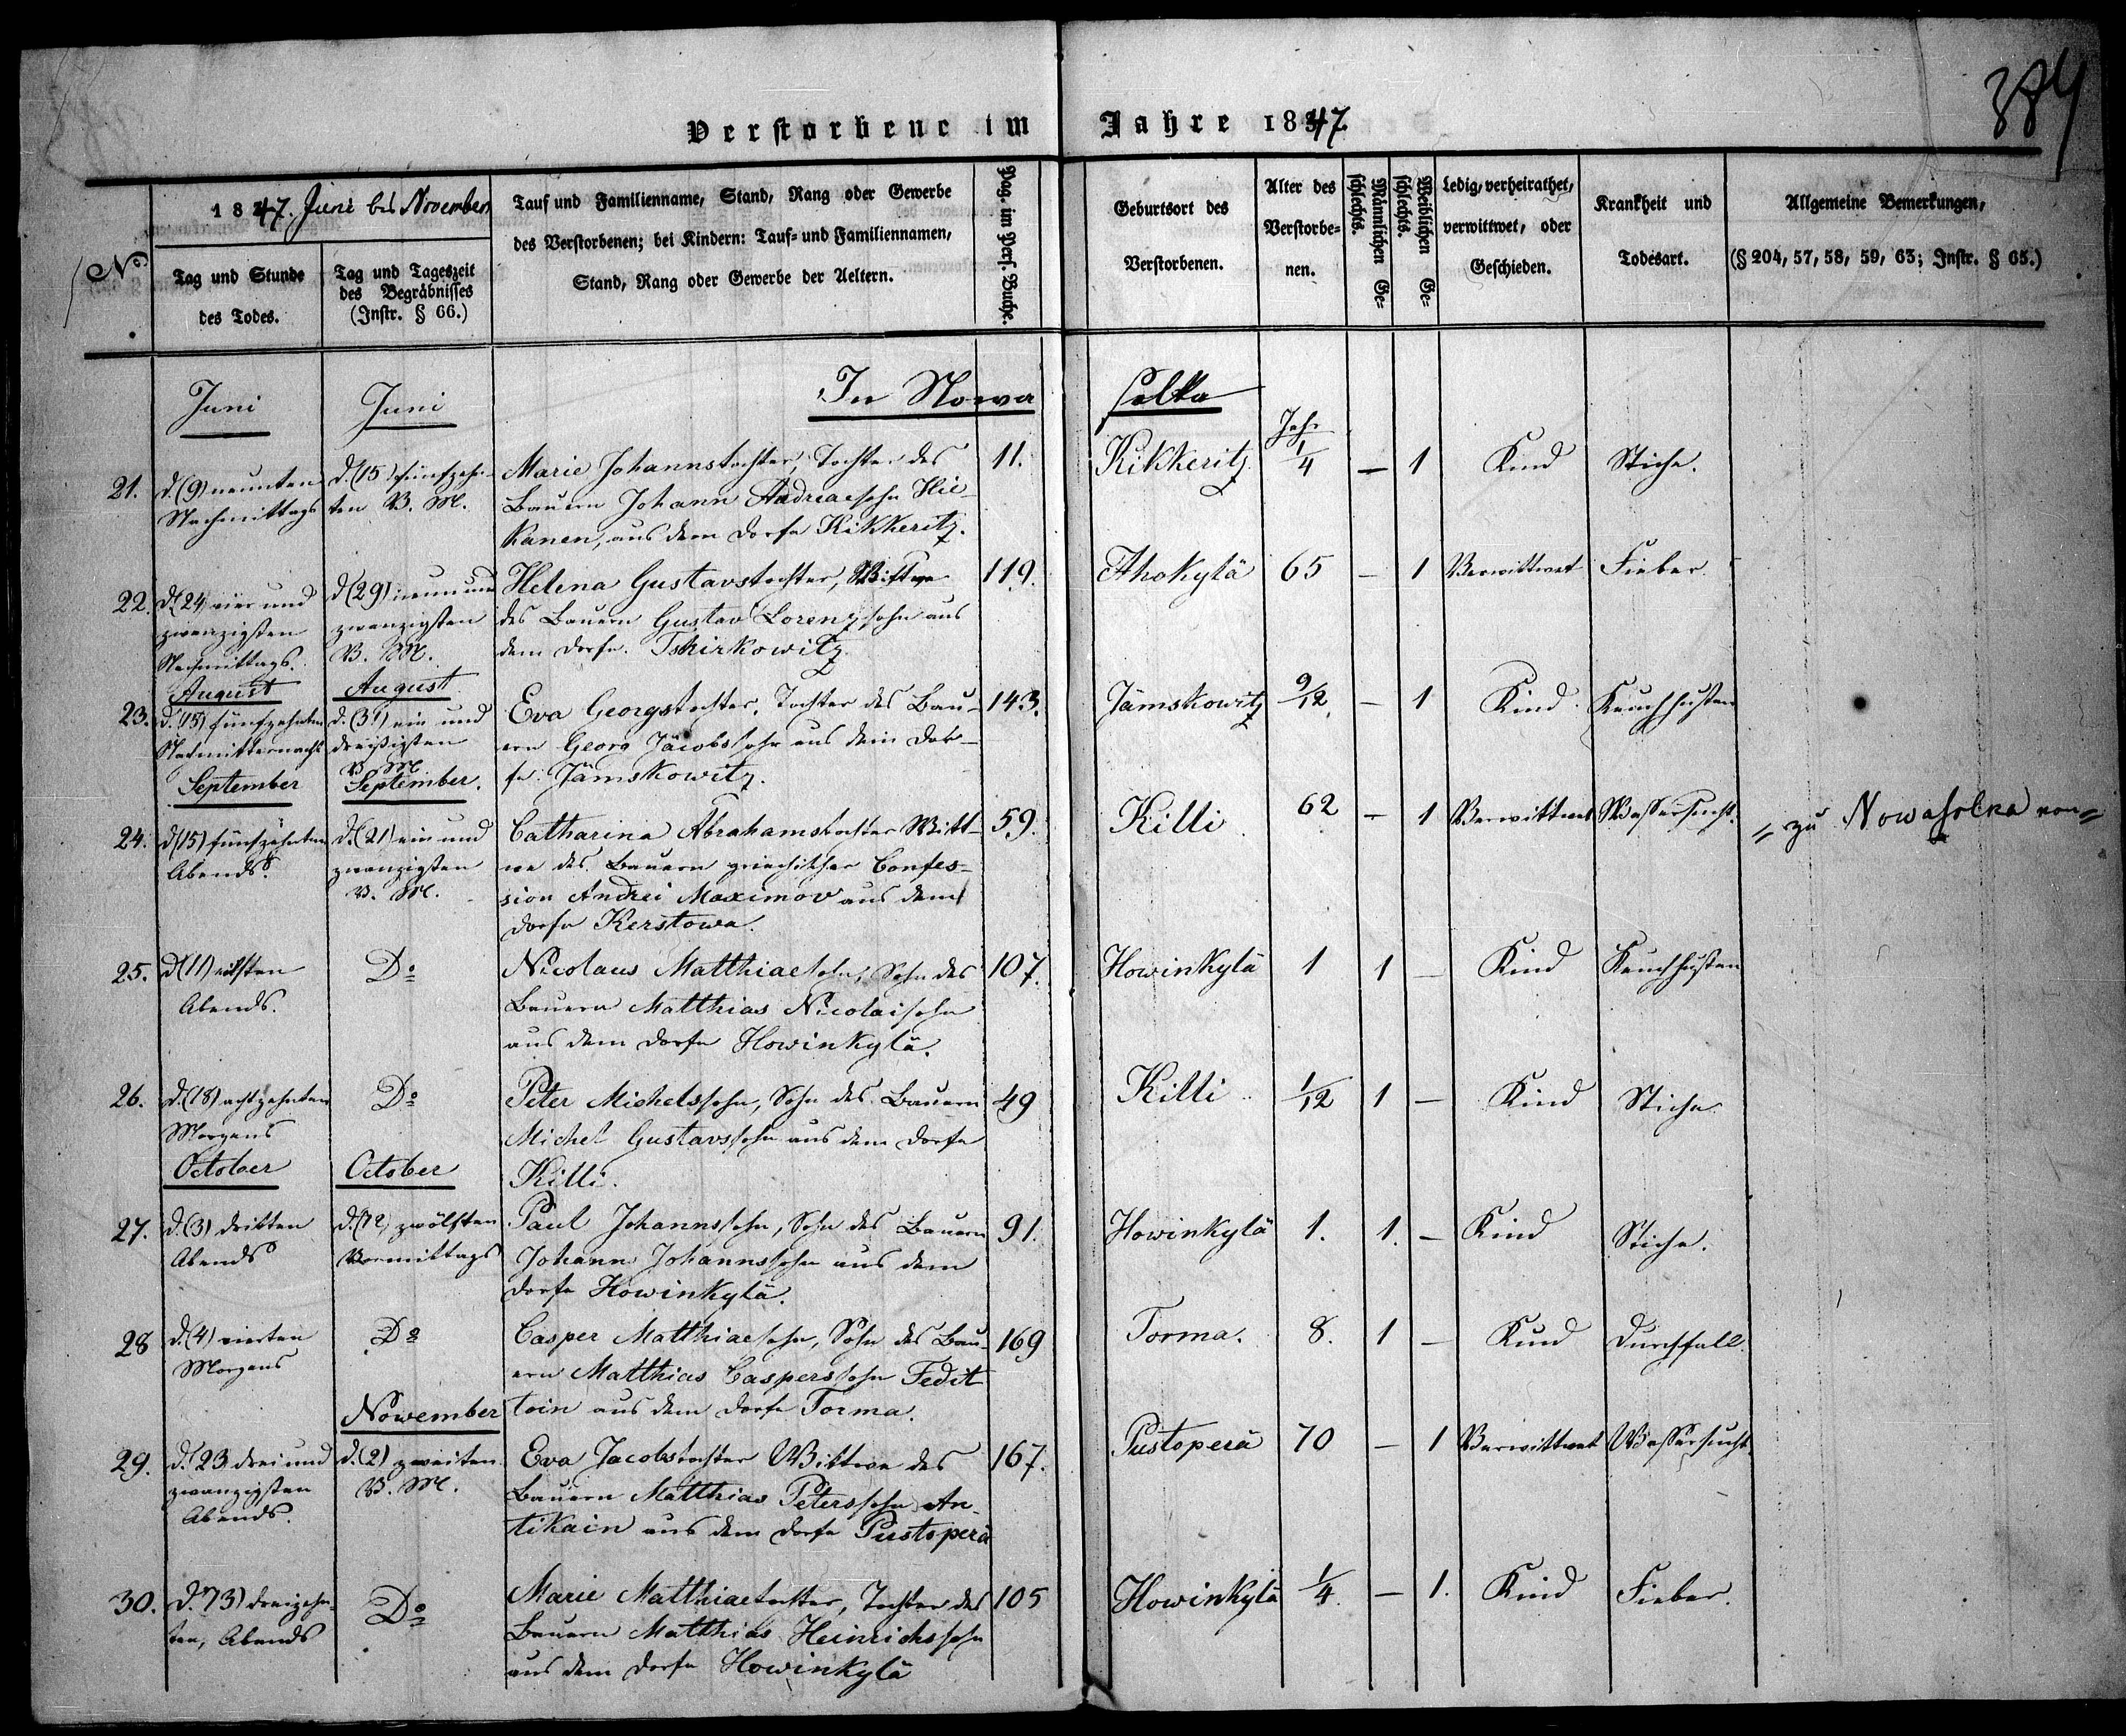 384
Verstorbene im Jahre 1847
No.
1847. Juni bis November
Tag und Stunde
des Todes.
Tag und Tageszeit
des Begräbnisses
(Instr. § 66.)
Tauf und Familienname, Stand, Rang oder Gewerbe
des Verstorbenen; bei Kindern: Tauf- und Familiennamen,
Stand, Rang oder Gewerbe der Aeltern.
Pag. im Pers. Buche.
Geburtsort des
Verstorbenen.
Alter des
Verstorbe-
nen.
Männlichen Ge-
schlechts.
Weiblichen Ge-
schlechts.
Ledig, verheirathet,
verwittwet, oder
Geschieden.
Krankheit und
Todesart.
Allgemeine Bemerkungen,
(§ 204, 57, 58, 59, 63; Instr. § 65.)
In Nowa solka
Juni
Juni
Jahr
21.
d. (9) neunten
Nachmittags
d. (15) fünfzehn-
ten V. M.
Marie Johannstochter, Tochter des
Bauern Johann Andreaesohn Hie-
kanen, aus dem Dorfe Kikkeritz.
11.
Kikkeritz
1/4
—
1
Kind
Stiche.
22.
d. (24) vier und
zwanzigsten
Nachmittags.
d. (29) neun und
zwanzigsten
V. M.
Helena Gustavstochter, Wittwe
des Bauern Gustav Lorenzsohn aus
dem Dorfe Tshirkowitz
119.
Ahokylä
65
—
1
Verwittwet
Fieber.
August
August
23.
d. (15) fünfzehnten
Nachmitternacht
d. (31) ein und
dreißigsten
V. M.
Eva Georgstochter, Tochter des Bau-
ern Georg Jacobssohn aus dem Dor-
fe Jämskowitz.
143.
Jämskowitz
9/12
—
1
Kind
Keuchhusten
September
September.
24.
d. (15) fünfzehnten
Abends.
d. (21) ein und
zwanzigsten
V. M.
Catharina Abrahamstochter Witt-
we des Bauern griechischer Confes-
sion Andrei Maximov aus dem
Dorfe Kerstowa.
59.
Killi
62
—
1
Verwittwet
Wassersucht.
zu Nowasolka
25.
d. (11) eilften
Abends.
Do
Nicolaus Matthiaesohn, Sohn des
Bauern Matthias Nicolaisohn
aus dem Dorfe Howinkylä.
107.
Howinkylä
1
1
—
Kind
Keuchhusten
26.
d. (18) achtzehnten
Morgens
Do
Peter Michelssohn, Sohn des Bauern
Michel Gustavssohn aus dem Dorfe
Killi.
49
Killi
1/12
1
—
Kind
Stiche
October
October
27.
d. (3) dritten
Abends
d. (12) zwölften
Vormittags
Paul Johannssohn, Sohn des Bauern
Johann Johannssohn aus dem
Dorfe Howinkylä.
91.
Howinkylä
1.
1.
—
Kind
Stiche.
28
d. (4) vierten
Morgens
Do
Casper Matthiaesohn, Sohn des Bau-
ern Matthias Casperssohn Fedit
toin aus dem Dorfe Torma.
169
Torma.
8.
1
—
Kind
Durchfall.
November
29.
d. 23 drei und
zwanzigsten
Abends.
d. (2) zweiten
V. M.
Eva Jacobstochter Wittwe des
Bauern Matthias Peterssohn An
tikain aus dem Dorfe Pustoperä
167.
Pustoperä
70
—
1
Verwittwet
Wassersucht
30.
d. 13) dreizehn-
ten, Abends
Do
Marie Matthiaetochter, Tochter des
Bauern Matthias Heinrichssohn
aus dem Dorfe Howinkylä
105
Howinkylä
1/4.
—
1.
Kind
Fieber.